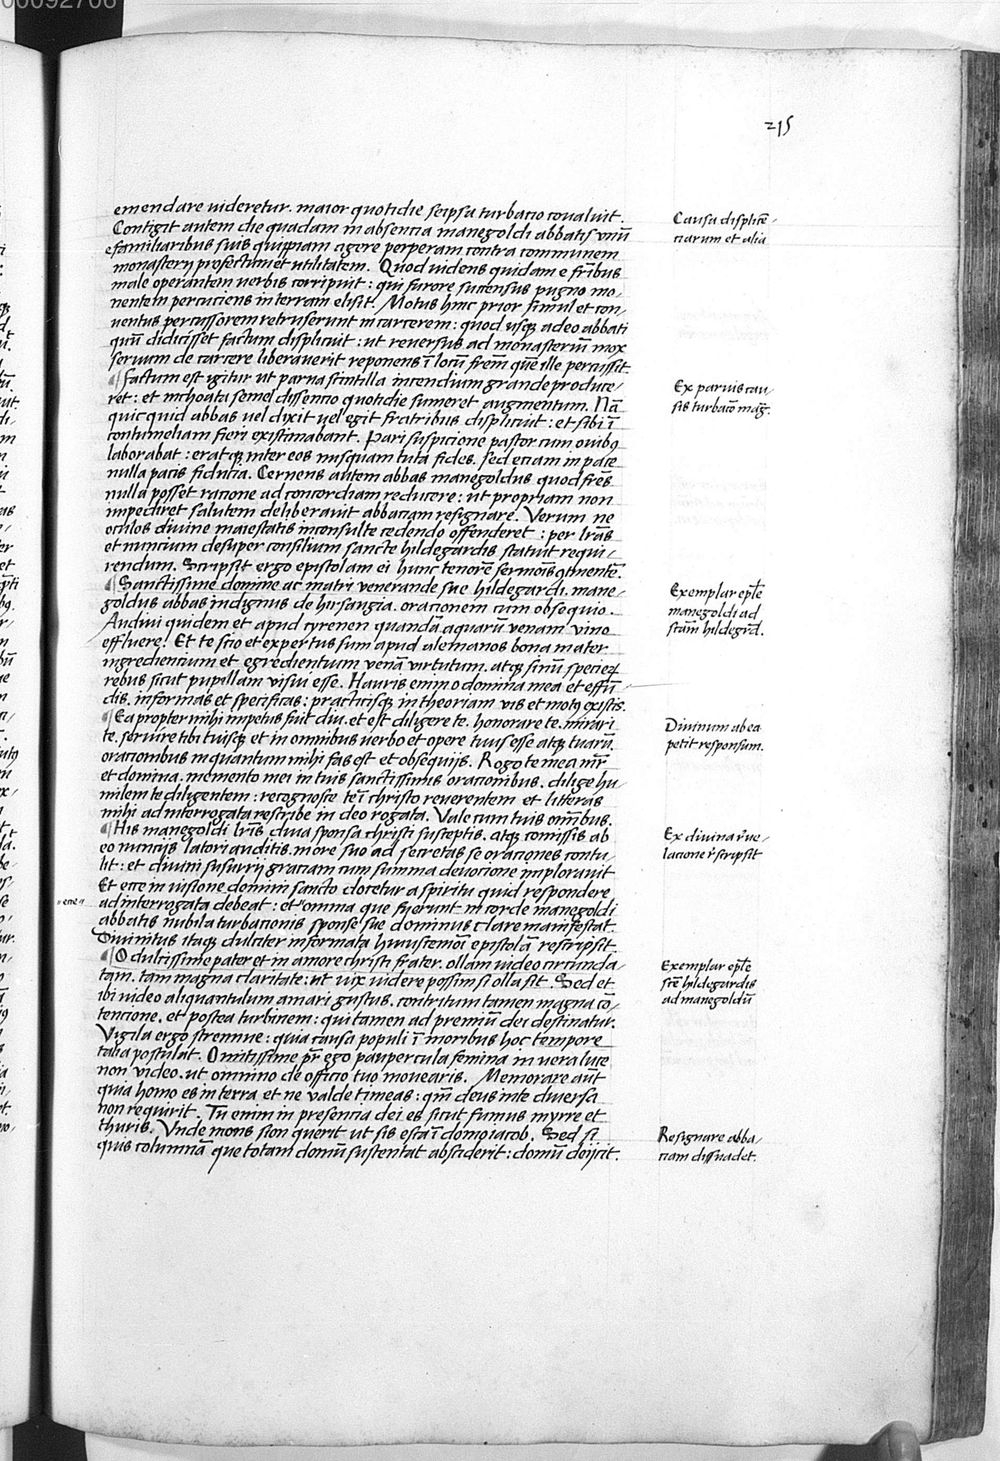 215
emendare uideretur. maior quotidie seipsa turbacio coualuit.
Contigit autem die quadam in absencia manegoldi abbatis vnū
e familiaribus suis quippiam agere perperam contra communem
monasterij profectum et utilitatem. Quod uidens quidam e fr̄ibus
male operantem uerbis corripuit: qui furore succensus pugno mo/
nentem percuciens in terram elisit. Motus hinc prior simul et con/
uentus percussorem retruserunt in carcerem: quod usqꝫ adeo abbati
quū didicisset factum displicuit: ut reuersus ad monasteriū mox
seruum de carcere liberauerit reponens ī locū frēm quē ille percussit.
¶ Factum est igitur ut parua scintilla incendium grande produce/
ret: et inchoata semel dissencio quotidie sumeret augmentum. Nā
quicquid abbas uel dixit uel egit fratribus displicuit: et sibi ī
contumeliam fieri existimabant. Pari suspicione pastor cum ouibꝰ
laborabat: eratqꝫ inter eos nusquam tuta fides. sed etiam in pace
nulla pacis fiducia. Cernens autem abbas manegoldus quod frēs
nulla posset racione ad concordiam reducere: ut propriam non
impediret salutem deliberauit abbaciam resignare. Verum ne
oculos diuine maiestatis inconsulte cedendo offenderet: per lrās
et nuncium desuper consilium sancte hildegardis statuit requi/
rendum. Scripsit ergo epistolam ei hunc tenorē sermōis ꝯtinentē.
¶ Sanctissime domine ac matri venerande sue hildegardi. mane/
goldus abbas indignus de hirsaugia. oracionem cum obsequio.
Audiui quidem et apud cyrenen quandā aquarū venam vino
effluere: Et te scio et expertus sum apud alemanos bona mater
ingredientium et egredientium venā virtutum. atqꝫ sinū specieꝝ
rebus sicut pupillam visui esse. Hauris enim o domina mea et effū/
dis. informas et specificas: practicisqꝫ in theoriam vis et motꝰ existis.
¶ Ea propter mihi impetus fuit diu. et est diligere te. honorare te. mirari
te. seruire tibi tuisqꝫ et in omnibus uerbo et opere tuus esse atqꝫ tuarū
oracionibus in quantum mihi fas est et obsequijs. Rogo te mea mr̄
et domina. memento mei in tuis sanctissimis oracionibus. dilige hu/
milem te diligentem: recognosce te ī christo reuerentem et litteras
mihi ad interrogata rescribe in deo rogata. Vale cum tuis om̄ibus.
¶ His manegoldi lr̄is diua sponsa christi susceptis. atqꝫ comissis ab
eo nuncijs latori auditis. more suo ad secretas se oraciones contu/
lit: et diuini susurrij graciam cum summa deuocione implorauit
Et ecce in uisione domini sancto docetur a spiritu quid respondere
"ecce" ad interrogata debeat: et "omnia que fuerunt in corde manegoldi
abbatis nubila turbacionis sponse sue dominus clare manifestat.
Diuinitus itaqꝫ dulciter informata huiuscemōi epistolā rescripsit.
¶ O dulcissime pater et in amore christi frater. ollam uideo circunda/
tam. tam magna claritate: ut uix uidere possim si olla sit. Sed et
ibi uideo aliquantulum amari gustus. contritum tamen magna cō/
tencione. et postea turbinem: qui tamen ad premiū dei destinatur.
Vigila ergo strennue: quia causa populi ī moribus hoc tempore
talia postulat. O mitissime pr̄ ego paupercula femina in uera luce
non video. ut omnino de officio tuo mouearis. Memorare aūt
quia homo es in terra et ne valde timeas: qm̄ deus in te diuersa
non requirit. Tu enim in presencia dei es sicut fumus myrre et
thuris. Vnde mons sion querit ut sis esca ī domo iacob. Sed si
quis columnā que totam domū sustentat absciderit: domū deijcit.
Causa displicē/
tiarum et alia
Ex paruis cau/
sis turbacō mag̃.
Exemplar ep̄le
manegoldi ad
scām hildegr̄d.
Diuinum ab ea
petit responsum.
Ex diuina r̄ue/
lacione r̄scripsit
Exemplar ep̄le
scē hildegardis
ad manegoldū
Resignare abba/
ciam dissuadet.